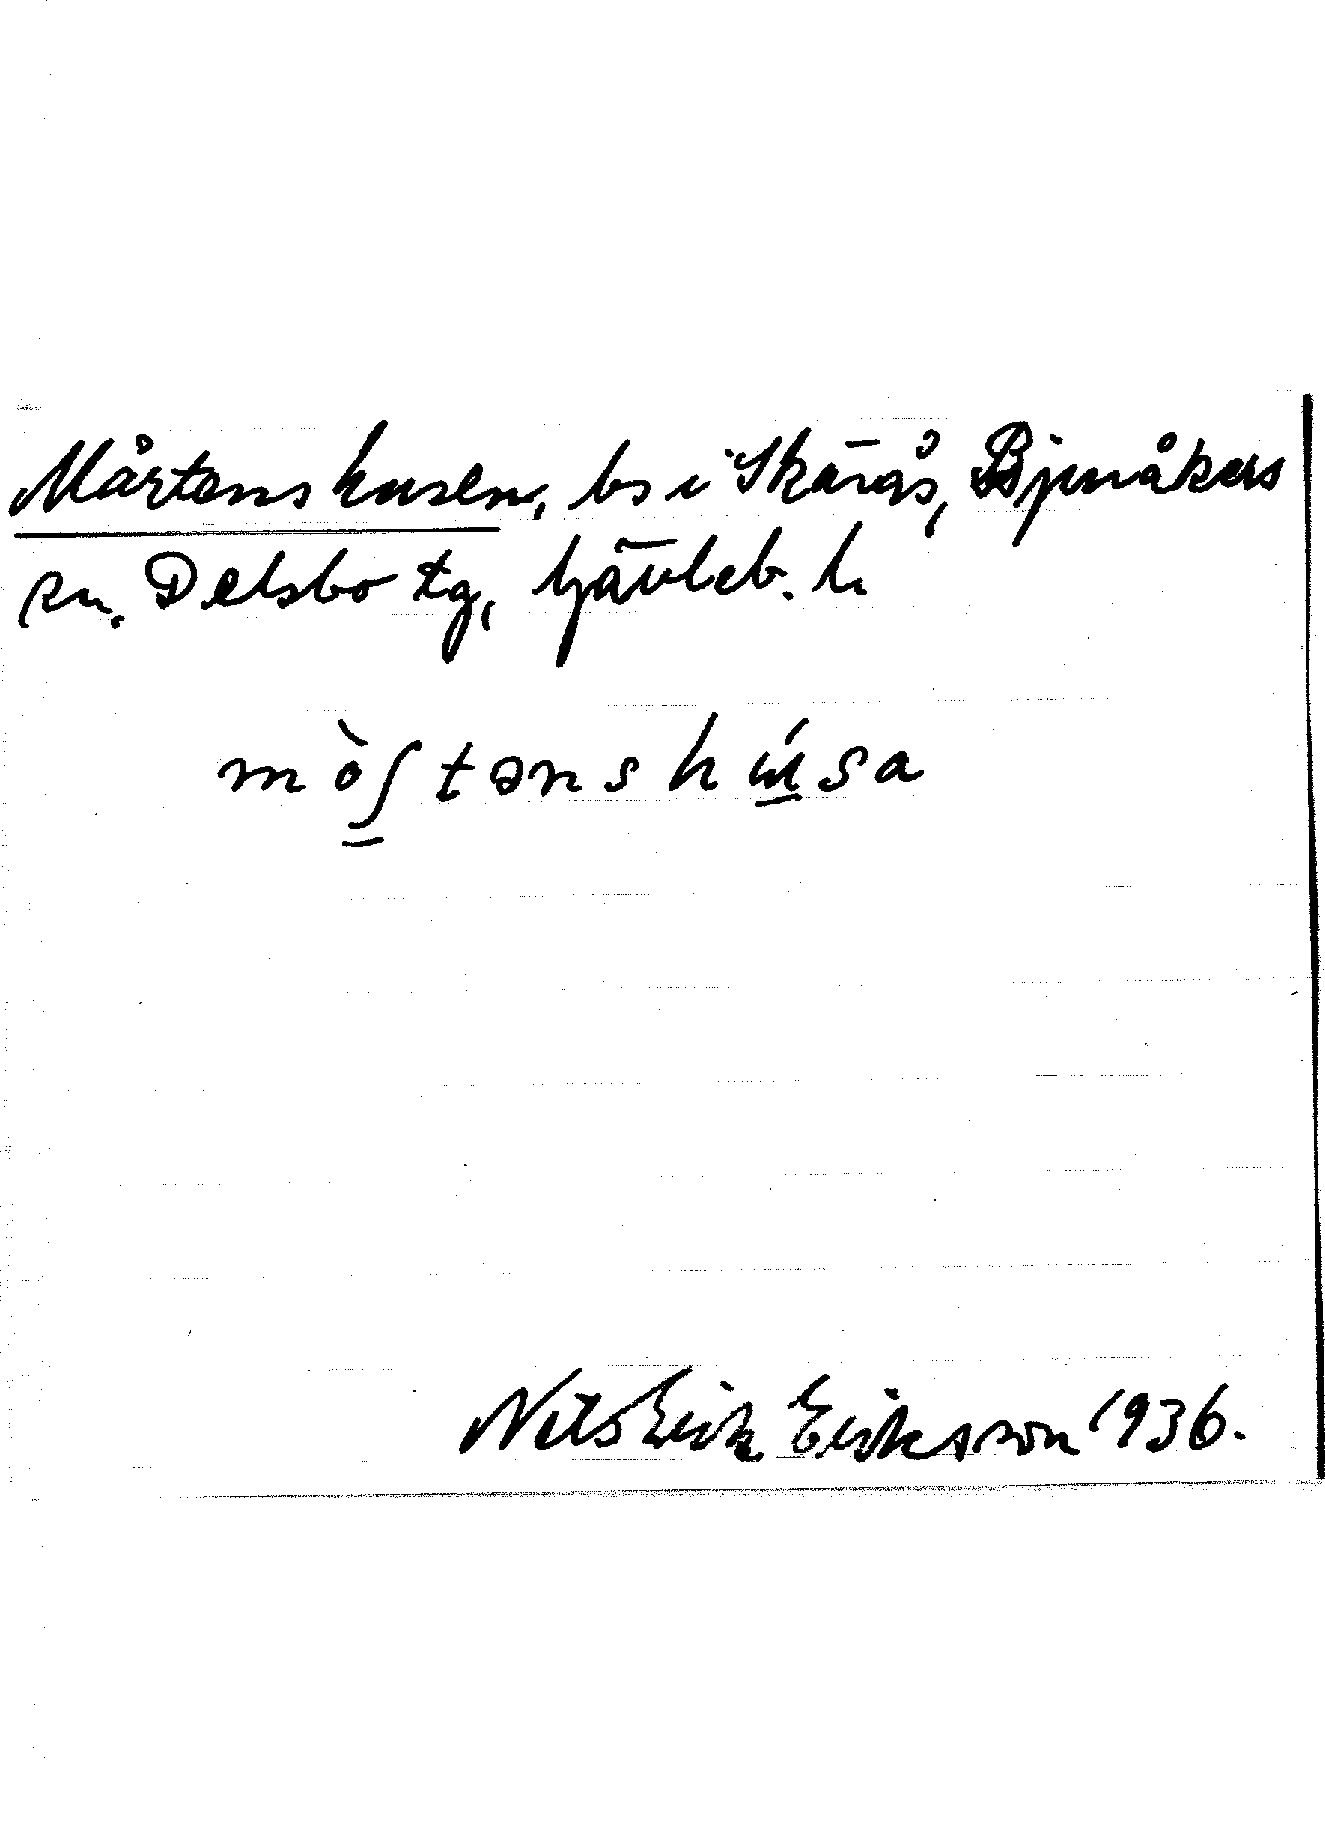 Mårtenshusen, bs i Skärås, Bjuråkers
sn. Delsbo tg, Gävleb. l.
mòʃtənshúsa
Nils Erik Eriksson 1936.